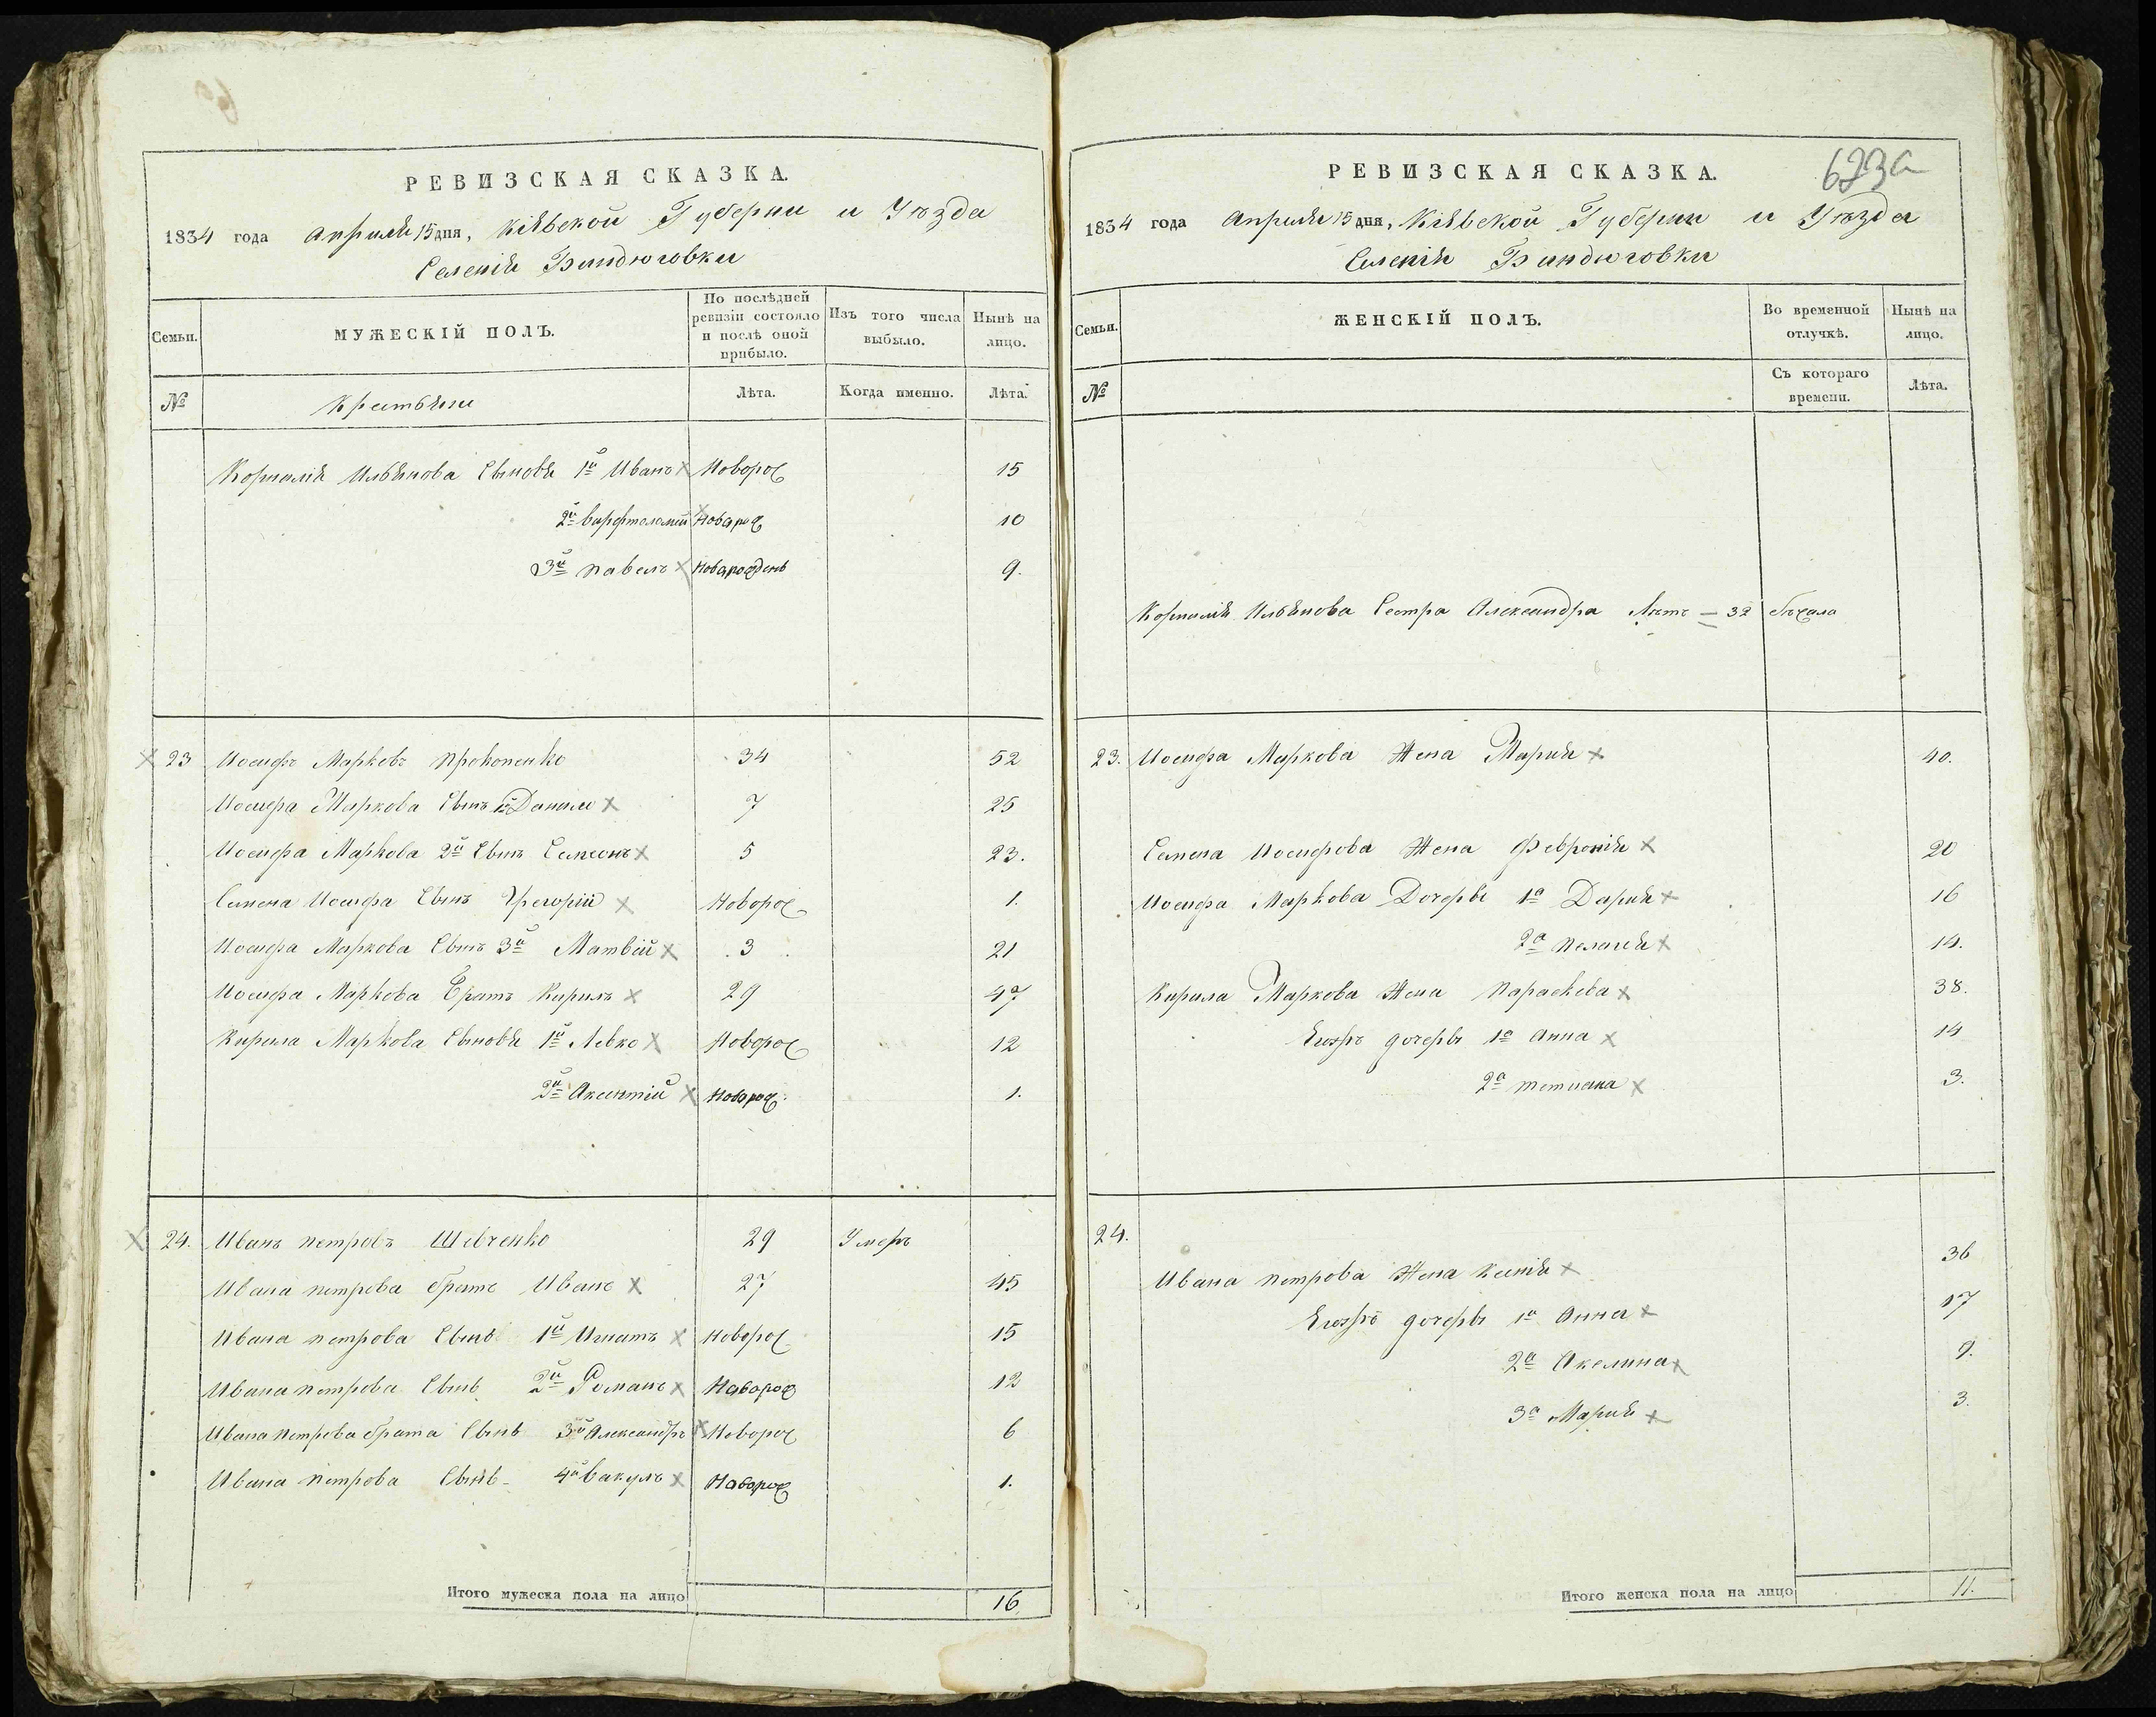 РЕВИЗСКАЯ СКАЗКА.
1834 года Апрѣля 15 дня, Кіевской Губерни и Уѣзда
Селенія Биндюговки
Семьи.
МУЖЕСКІЙ ПОЛЪ.
По послѣдней ревизіи состояло и послѣ оной прибыло.
Изъ того числа выбыло.
Нынѣ на лицо.
№
Крестьяне
Лѣта.
Когда именно.
Лѣта.
Корнилія Ильянова Сыновя 1й Иванъ Новорož 15
2й Варфтоломей Новорож 10
3й Павелъ Новорожденъ 9.
23 Иосифъ Марковъ Прокопенко 34 52
Иосифа Маркова Сынъ 1й Данило 7 25
Иосифа Маркова 2й Сынъ Семионъ 5 23.
Семена Иосифа Сынъ Григорій Новорож 1.
Иосифа Маркова Сынъ 3й Матвѣй 3 21
Иосифа Маркова Братъ Кирилъ 29 47
Кирила Маркова Сыновя 1й Левко Новорож 12
2й Аксентій Новорож 1.
24. Иванъ Петровъ Шевченко 29 Умеръ
Ивана Петрова братъ Иванъ 27 45
Ивана Петрова Сынъ 1й Игнатъ Новорож 15
Ивана Петрова Сынъ 2й Романъ Новорож 12
Ивана Петрова брата Сынъ 3й Александръ Новорож 6
Ивана Петрова Сынъ 4й Вакулъ Новорож 1.
Итого мужеска пола на лицо 16
РЕВИЗСКАЯ СКАЗКА.
1834 года Апрѣля 15 дня, Кіевской Губерни и Уѣзда
Селенія Биндюговки
Семьи.
ЖЕНСКІЙ ПОЛЪ.
Во временной отлучкѣ.
Нынѣ на лицо.
№
Съ котораго времени.
Лѣта.
Корнилія Ильянова Сестра Александра Лѣтъ 32 бѣжала
23. Иосифа Маркова Жена Марія 40.
Семена Иосифова Жена Февронія 20
Иосифа Маркова Дочеры 1а Дарія 16
2а Пелагія 14.
Кирила Маркова Жена Параскева 38.
дочеры 1а Анна 14
2а Тетиана 3.
24.
Ивана Петрова Жена Ксенія 36
дочеры 1а Анна 17
2а Акелина 9.
3а Марія 3.
Итого женска пола на лицо 11.